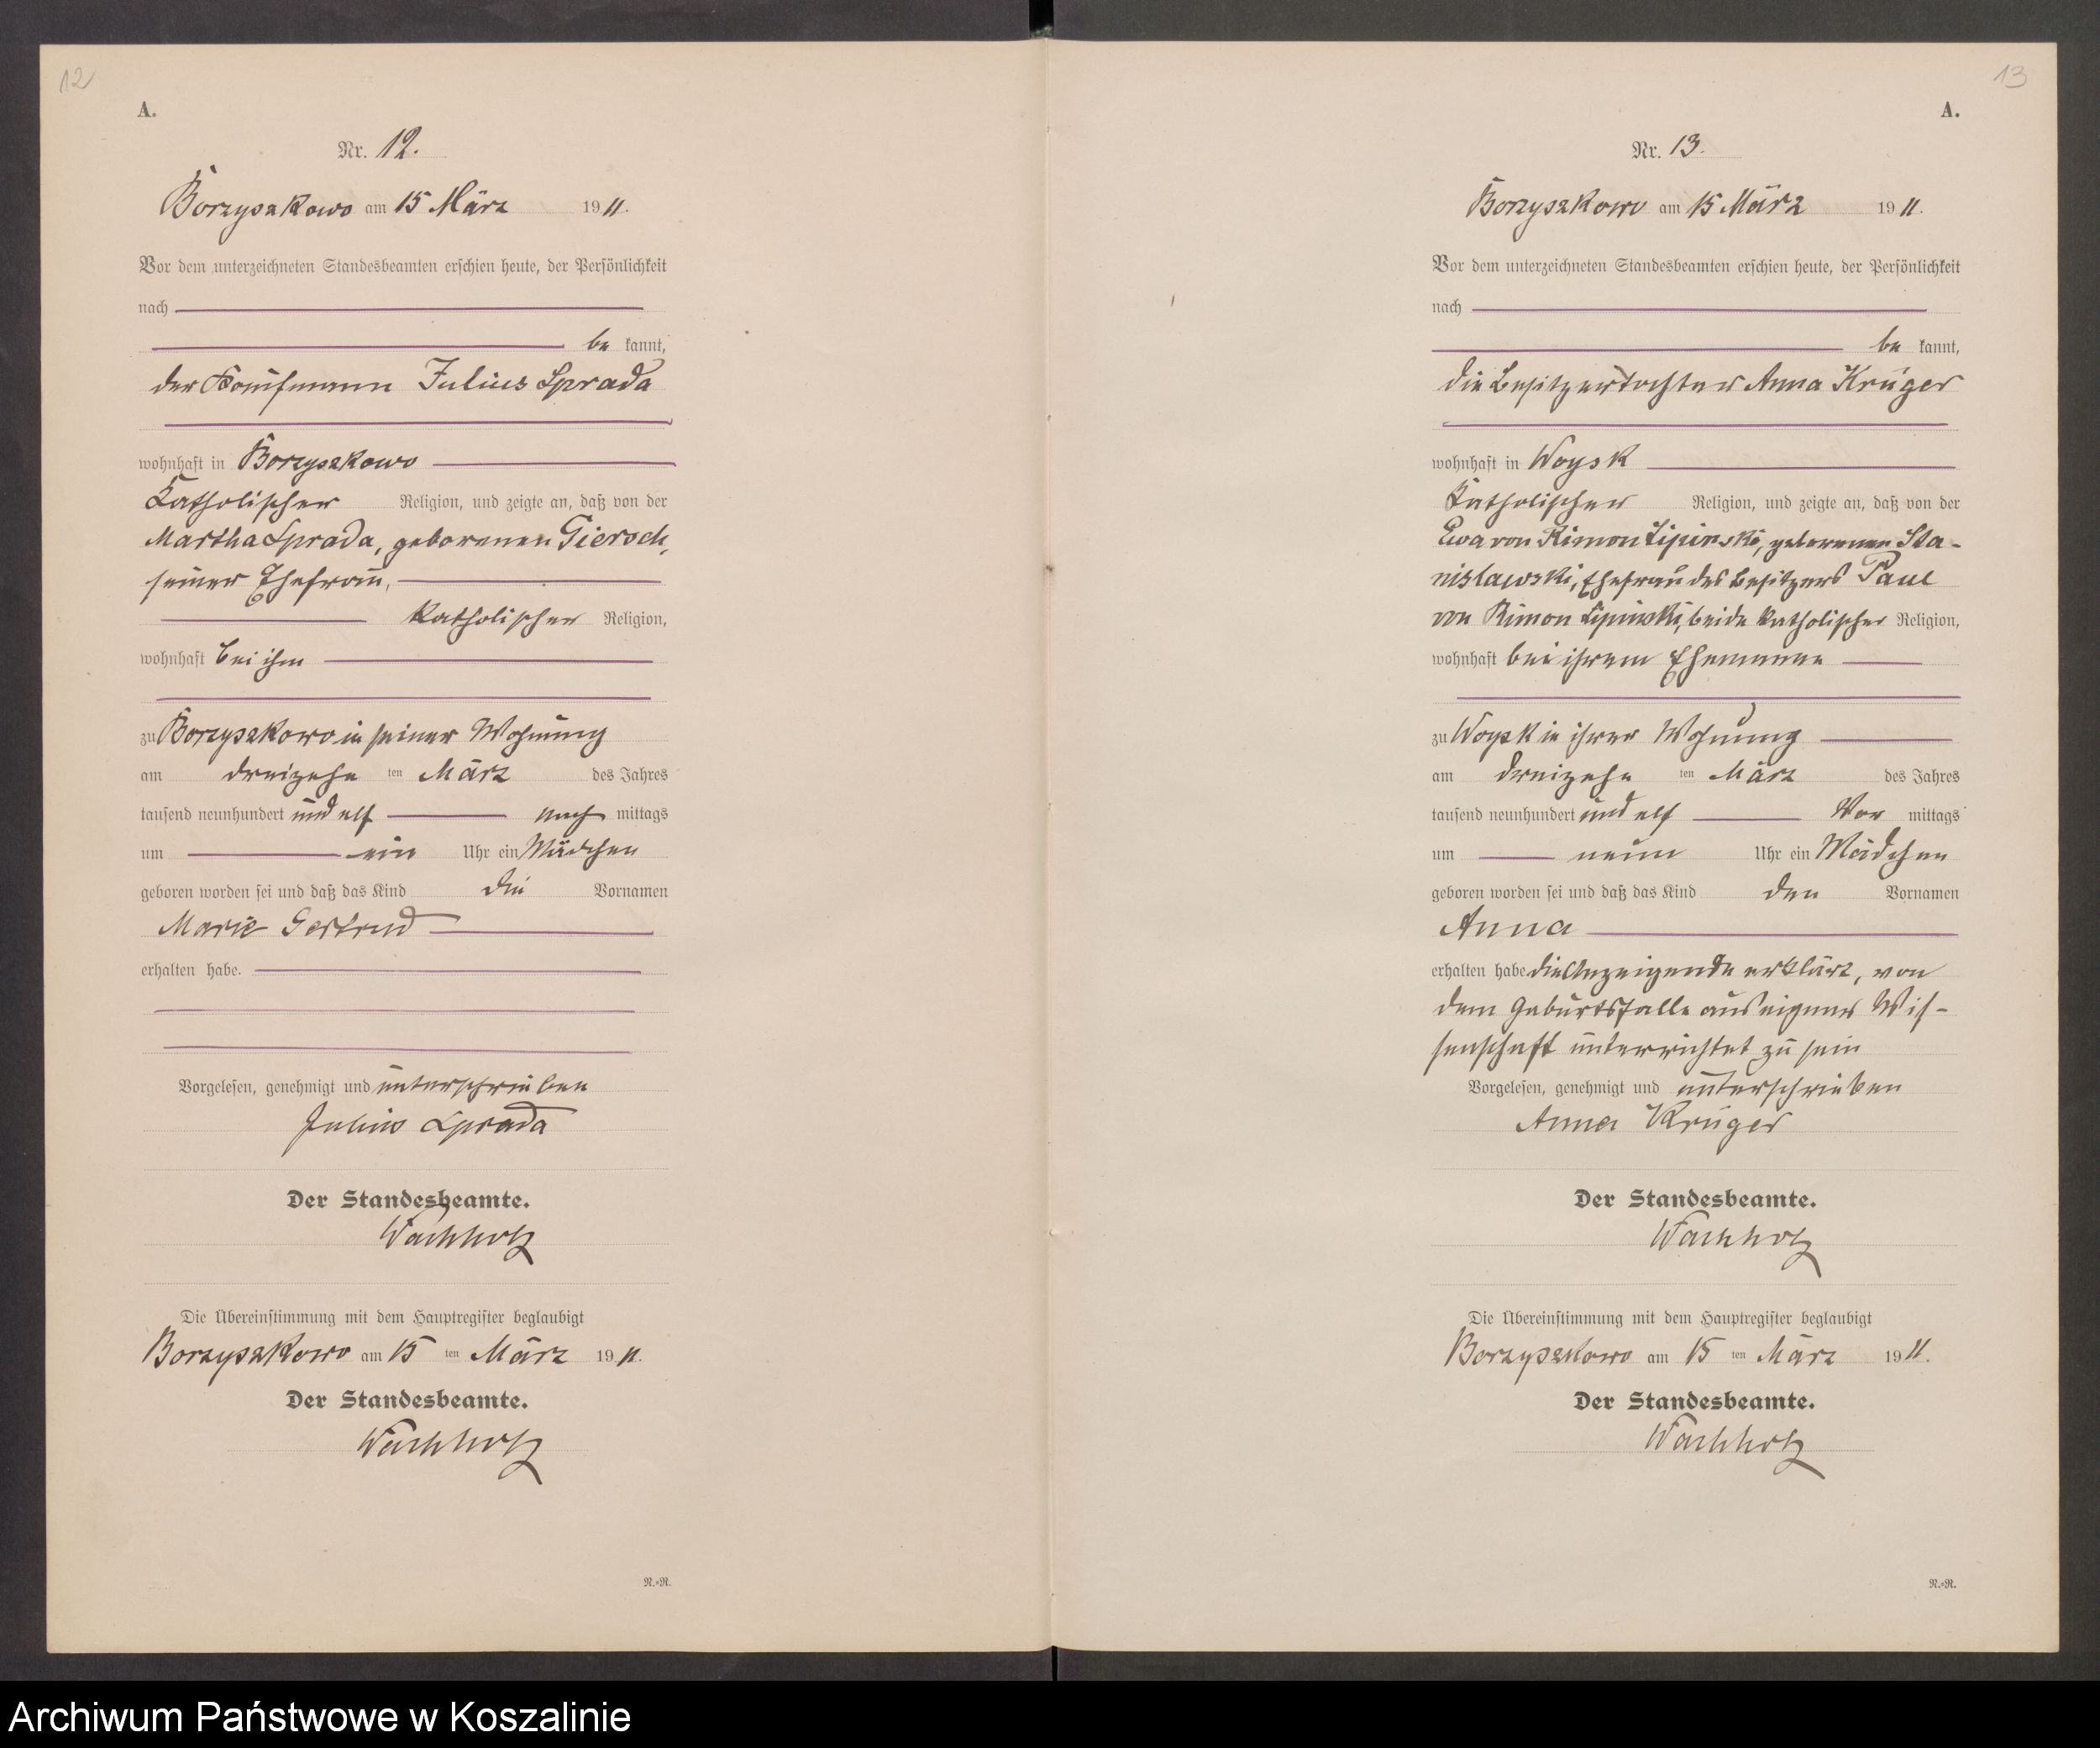 12
A.
Nr. 12.
Borzyszkowo am 15 März 1911.
Vor dem unterzeichneten Standesbeamten erschien heute, der Persönlichkeit
nach
be kannt,
der Kaufmann Julius Sprada
wohnhaft in Borzyszkowo
Katholischer Religion, und zeigte an, daß von der
Martha Sprada, geborenen Giersch,
seiner Ehefrau,
katholischer Religion,
wohnhaft bei ihm
zu Borzyszkowo in seiner Wohnung
am dreizehn ten März des Jahres
tausend neunhundert und elf nach mittags
um ein Uhr ein Mädchen
geboren worden sei und daß das Kind die Vornamen
Marie Gertrud
erhalten habe.
Vorgelesen, genehmigt und unterschrieben
Julius Sprada
Der Standesbeamte.
Wachholz
Die Übereinstimmung mit dem Hauptregister beglaubigt
Borzyszkowo am 15 ten März 1911.
Der Standesbeamte.
Wachholz
N.=N.
13
A.
Nr. 13.
Borzyszkowo am 15 März 1911.
Vor dem unterzeichneten Standesbeamten erschien heute, der Persönlichkeit
nach
be kannt,
die Besitzertochter Anna Krüger
wohnhaft in Woysk
Katholischer Religion, und zeigte an, daß von der
Ewa von Rimon Lipinski, geborenen Sta-
nislawski, Ehefrau des Besitzers Paul
von Rimon Lipinski, beide katholischer Religion,
wohnhaft bei ihrem Ehemanne
zu Woysk in ihrer Wohnung
am dreizehn ten März des Jahres
tausend neunhundert und elf Vor mittags
um neun Uhr ein Mädchen
geboren worden sei und daß das Kind den Vornamen
Anna
erhalten habe die Anzeigende erklärt, von
dem Geburtsfalle aus eigener Wis-
senschaft unterrichtet zu sein
Vorgelesen, genehmigt und unterschrieben
Anna Krüger
Der Standesbeamte.
Wachholz
Die Übereinstimmung mit dem Hauptregister beglaubigt
Borzyszkowo am 15 ten März 1911.
Der Standesbeamte.
Wachholz
N.=N.
Archiwum Państwowe w Koszalinie